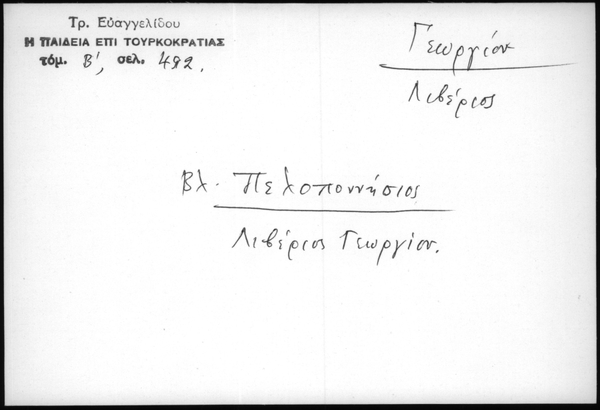 Τρ. Εὐαγγελίδου
Η ΠΑΙΔΕΙΑ ΕΠΙ ΤΟΥΡΚΟΚΡΑΤΙΑΣ
τόμ. Β', σελ. 492.
Γεωργίου
Λιβέριος
Βλ. Πελοποννήσιος
Λιβέριος Γεωργίου.